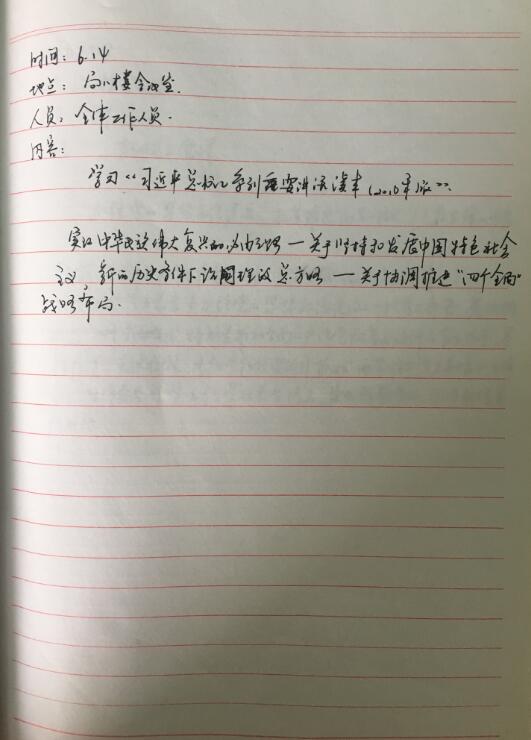 时间：6.14
地点：局八楼会议室.
人员：全体工作人员.
内容：
学习《习近平总书记系列重要讲话读本（2016年版）》.
实现中华民族伟大复兴的必由之路—关于坚持和发展中国特色社会
主义 新的历史条件下治国理政总方略 — 关于协调推进“四个全面”
战略布局.